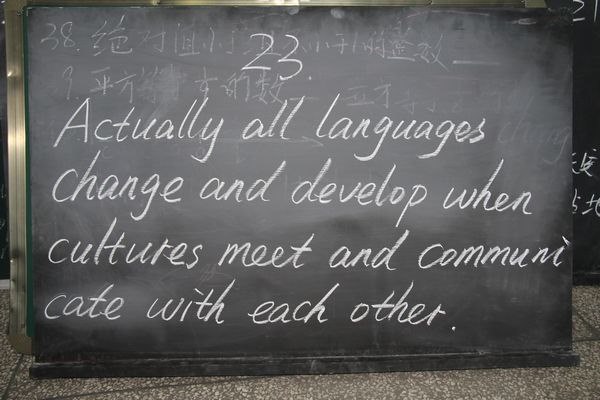 38. 绝对值小于 小于1的整数
23.
9. 平方等 的数 平方等于
Actually all languages
change and develop when
cultures meet and communi
cate with each other.